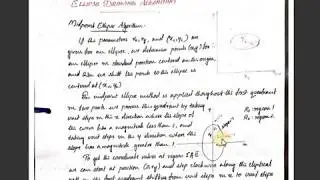 ELLIPSE DRAWING ALGORITHMS
Midpoint Ellipse Algorithm:
If the parameters rx, ry, and (xc, yc) are
given for an ellipse, we determine points (x,y) for
an ellipse in standard position centered on the origin,
and then we shift the points so the ellipse is
centered at (xc, yc)
midpoint ellipse method is applied throughout the first quadrant
in two parts. we process this quadrant by taking
unit steps in the x direction where the slope of
the curve has a magnitude less than 1, and
taking unit steps in the y direction where the
slope has a magnitude greater than 1.
To get the coordinate values at region
we can start at position (0, ry) and step clockwise along the elliptical
path in the first quadrant shifting from unit steps in x to unit steps
R1 → region 1
R2 → region 2